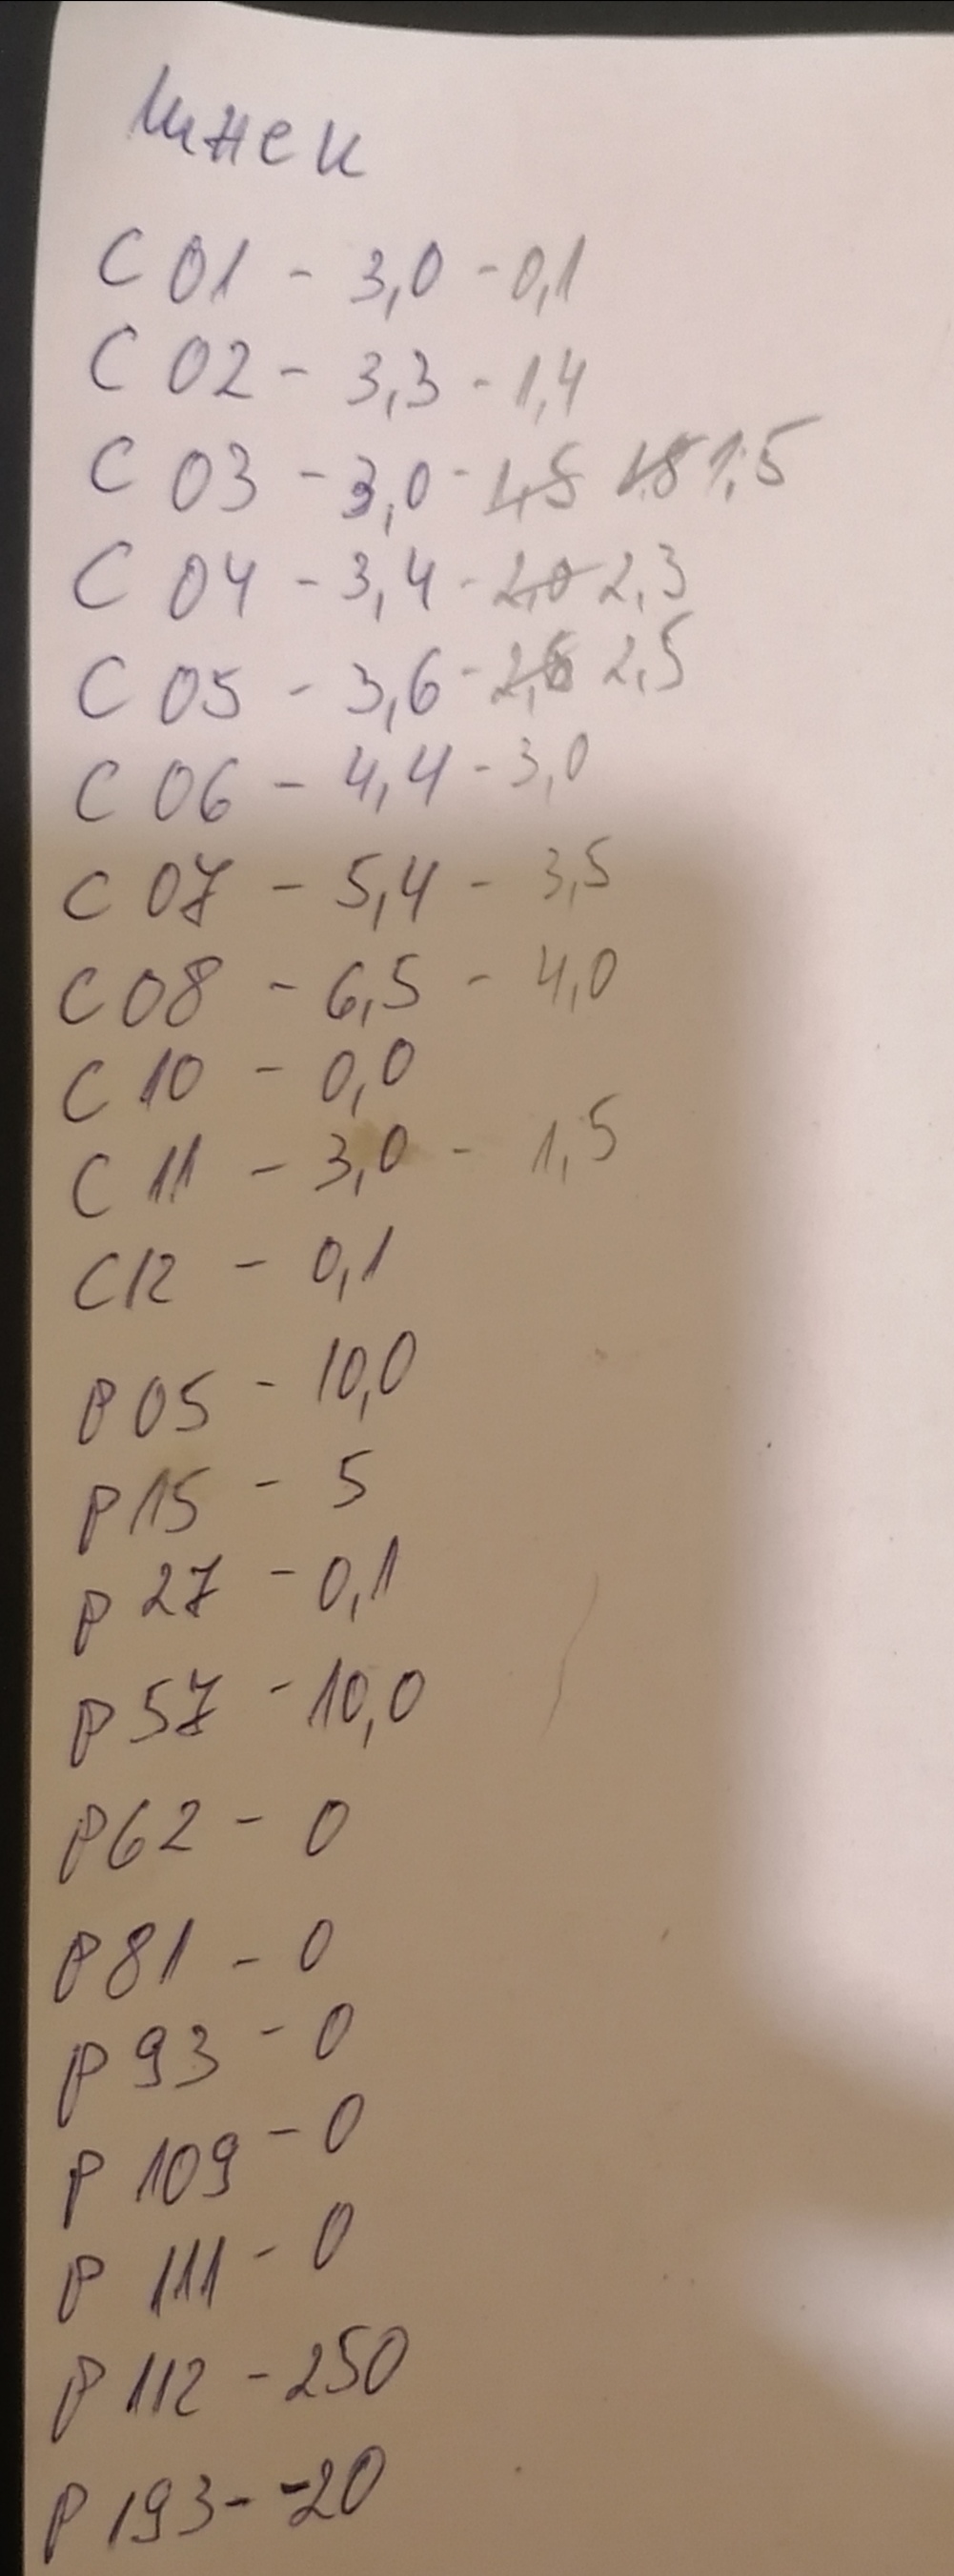 Шнек
С 01 - 3,0 - 0,1
С 02 - 3,3 - 1,4
С 03 - 3,0 - 1,5 1,8 1,5
С 04 - 3,4 - 2,0 2,3
С 05 - 3,6 - 2,6 2,5
С 06 - 4,4 - 3,0
С 07 - 5,4 - 3,5
С 08 - 6,5 - 4,0
С 10 - 0,0
С 11 - 3,0 - 1,5
С12 - 0,1
Р 05 - 10,0
Р 15 - 5
Р 27 - 0,1
Р 57 - 10,0
Р62 - 0
Р 81 - 0
Р 93 - 0
Р 109 - 0
Р 111 - 0
Р 112 - 250
Р 193 - -20